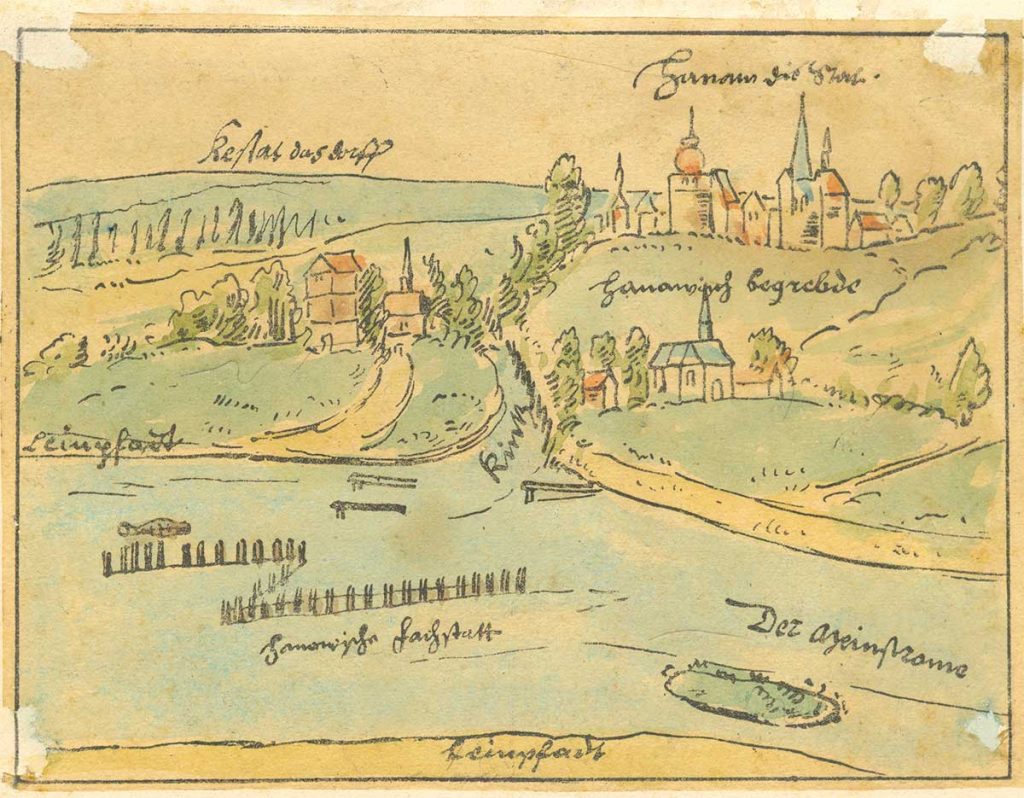 Hanaw die Stat.
Kestat das dorff
Hanawisch begrebde
Leinpfadt
Kintz
Hanawische fachstatt
Der Meinstrome
Leinpfadt